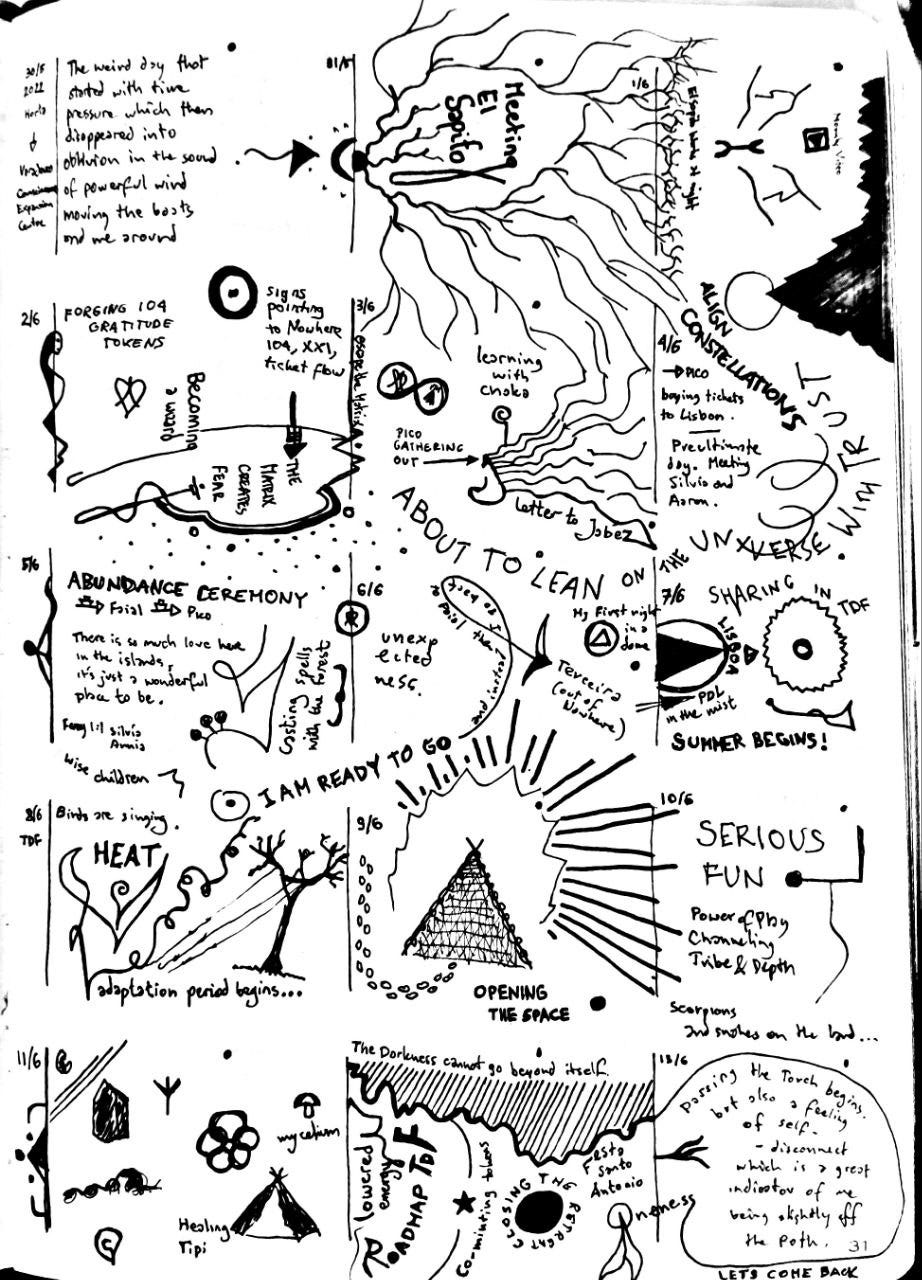 30/5
2022
Horta
The weird day that
started with time
pressure which then
disappeared into
oblivion in the sound
of powerful wind
moving the boats
and me around
31/5
Meeting
El
Sapito
1/6
El Sapito works at night
2/6
FORGING 104
GRATITUDE
TOKENS
Becoming
a wizard
signs
pointing
to Nowhere
104, XXI,
ticket flow
THE
MATRIX
CREATES
FEAR
3/6
escape the Matrix
learning
with
choka
PICO
GATHERING
OUT
Letter to Jabez
ALIGN
CONSTELLATIONS
4/6
PICO
buying tickets
to Lisbon.
Preultimate
day. Meeting
Silvio and
Aaron.
TRUST
HIM
ABOUT TO LEAN ON THE UNXVERSE
5/6
ABUNDANCE CEREMONY
Faial
Pico
There is so much love here
in the islands,
it's just a wonderful
place to be.
Silvia
wise children
Casting spells
with the forest
6/6
unexp
lected
ness.
and instead?
Terceira
(out of
Nowhere)
My First night
in a
dome
7/6
SHARING
IN
TDF
LISBOA
PDL
in the mist
SUMMER BEGINS!
I AM READY TO GO
8/6
TDF
Birds are singing.
HEAT
adaptation period begins...
9/6
OPENING
THE SPACE
10/6
SERIOUS
FUN
Power of Play
Channeling
Tribe & Depth
Scorpions
and snakes on the land...
11/6
mycelium
Healing
Tipi
The Darkness cannot go beyond itself.
lowered
energy
ROADMAP TDF
Co-minting tokens
CLOSING THE RETREAT
Festa
Santo
Antonio
Oneness
13/6
passing the Torch begins.
but also a feeling
of self-
- disconnect
which is a great
indicator of me
being slightly off
the path.
31
LETS COME BACK